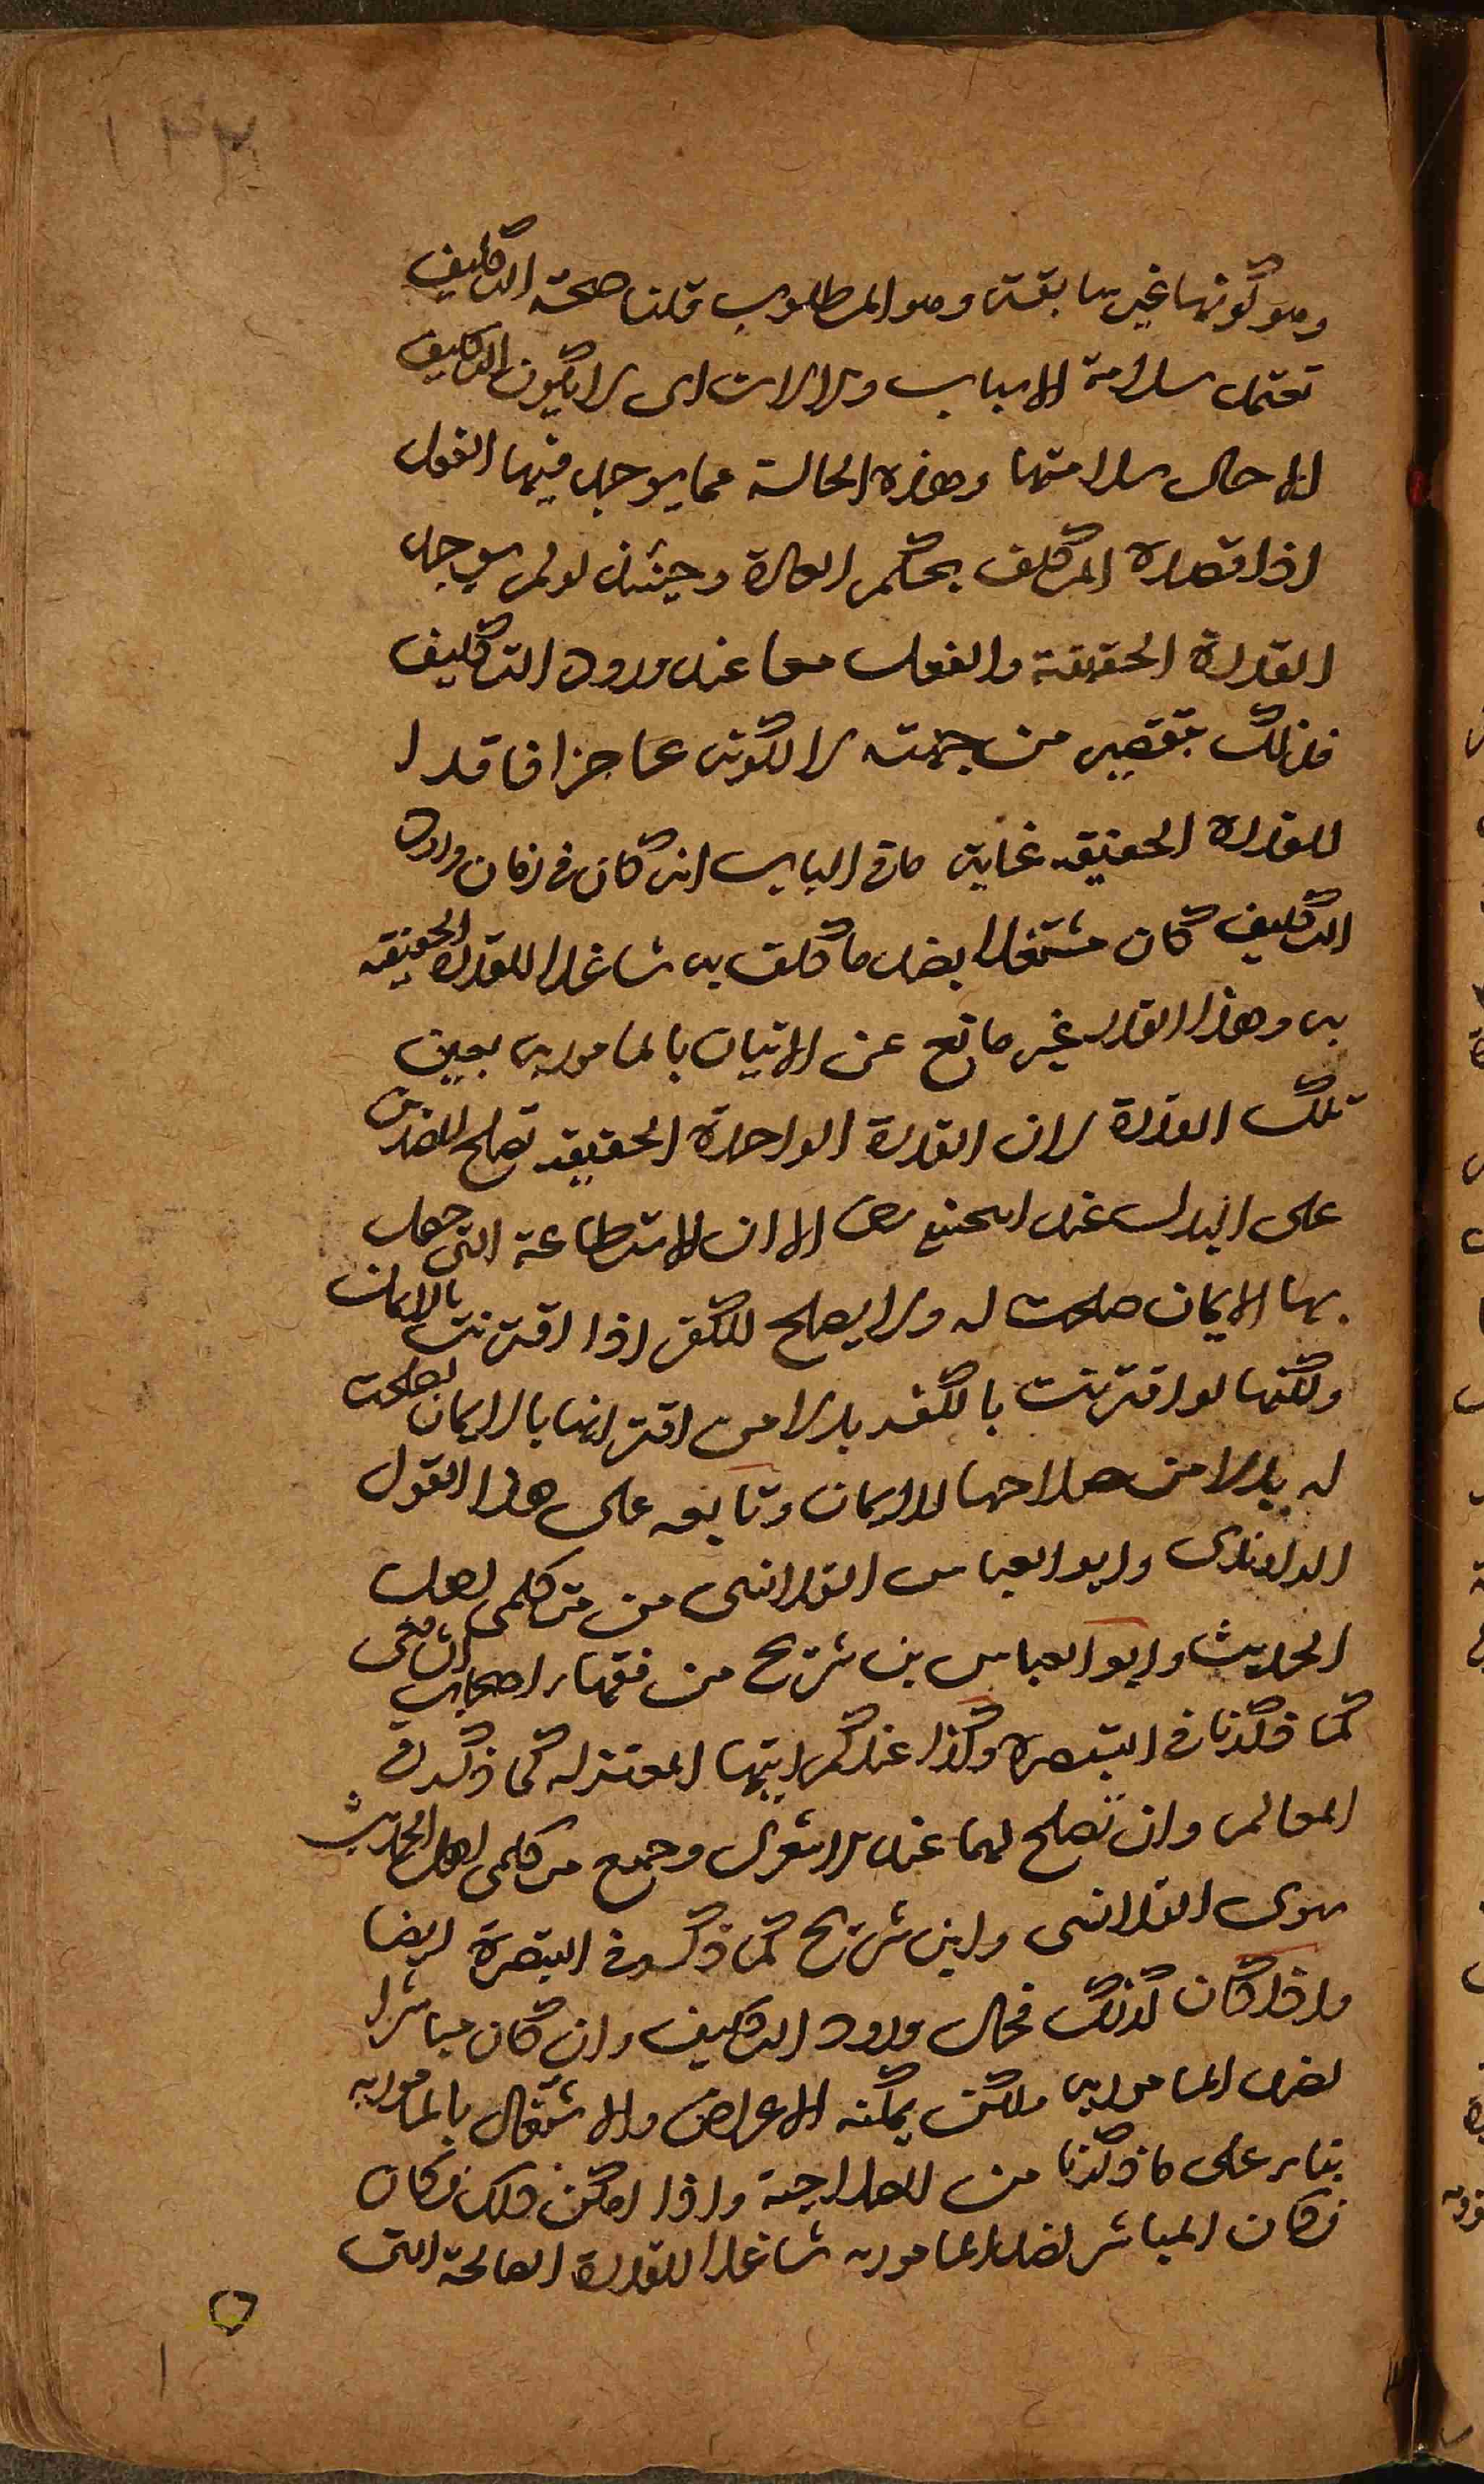 ١٣٢
وهو كونها غير سابقة وهو المطلوب قلنا صحة التكليف
تعتمد سلامة الاسباب والالات اى لا يكون التكليف
الا حال سلامتها وهذه الحالة مما يوجد فيها الفعل
اذا قصده المكلف بحكم العادة وحينئذ لو لم يوجد
القدرة الحقيقة والفعل معا عند ورود التكليف
فذلك بتقصير من جهته لا لكونه عاجزا فاقدا
للقدرة الحقيقه غاية ما فى الباب انه كان فى زمان ورود
التكليف كان مشتغلا بضد ما كلف به شاغلا للقدرة الحقيقه
به وهذا القدر غير مانع عن الاتيان بالمامور به بعين
تلك القدرة لان القدرة الواحدة الحقيقه تصلح للضدين
على البدل عند ابيحنيفه رض الا ان الاستطاعة التى حصل
بها الايمان صلحت له ولا يصلح للكفر اذا اقترنت بالايمان
ولكنها لو اقترنت بالكفر بدلا من اقترانها بالايمان لصلحت
له بدلا من صلاحها للايمان وتابعه على هذا القول
الراوندى وابو العباس القلانسى من متكلمى اهل
الحديث وابو العباس بن شريح من فقهاء اصحاب الشافعى
كما ذكرنا فى التبصره وكذا عند اكثر المعتزله كما ذكر فى
المعالم وان تصلح لهما عند الاشعرى وجميع متكلمى اهل الحديث
سوى القلانسى وابن شريح كما ذكره فى التبصرة ايضا
واذا كان كذلك فحال ورود التكليف وان كان مباشرا
لضد المامور به ولكن يمكنه الاعراض والاشتغال بالمامور به
بناء على ما ذكرنا من الصلاحية واذا امكن ذلك فكان
فكان المباشر لضد المامور به شاغلا للقدرة الصالحة التى